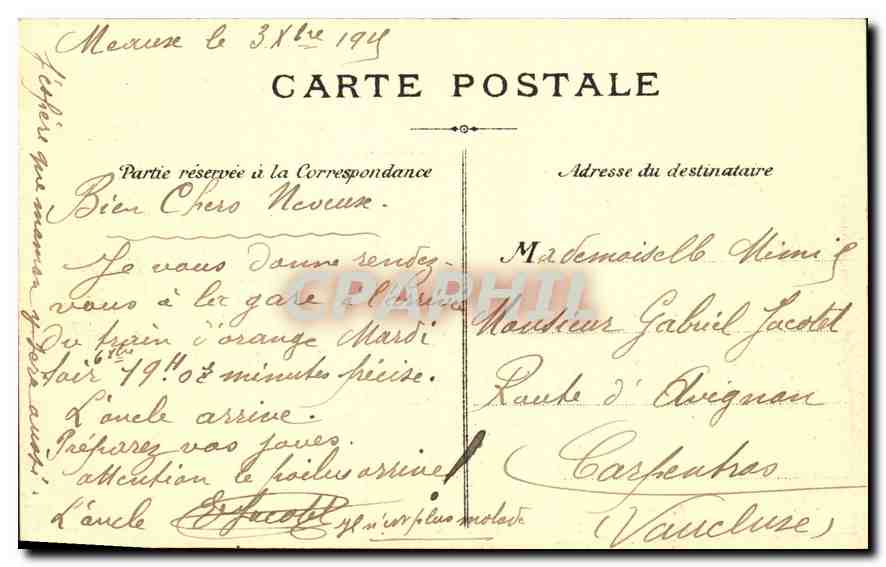 Meaux le 3 Xbre 191
CARTE POSTALE
Partie réservée à la Correspondance
Adresse du destinataire
Bien Chers Neveux.
Je vous donne rendez-
vous à la gare à l'arrivée
du train d'orange Mardi
6 Xbre
soir 19H 07 minutes précise.
L'oncle arrive.
Préparez vos joues.
attention le poilu arrive !
L'oncle E. Jacotet
il n'est plus malade
j'espère que maman y sera aussi.
Mademoiselle Mimi &
Monsieur Gabriel Jacotet
Route d'Avignon
Carpentras
(Vaucluse)
CPAPHIL